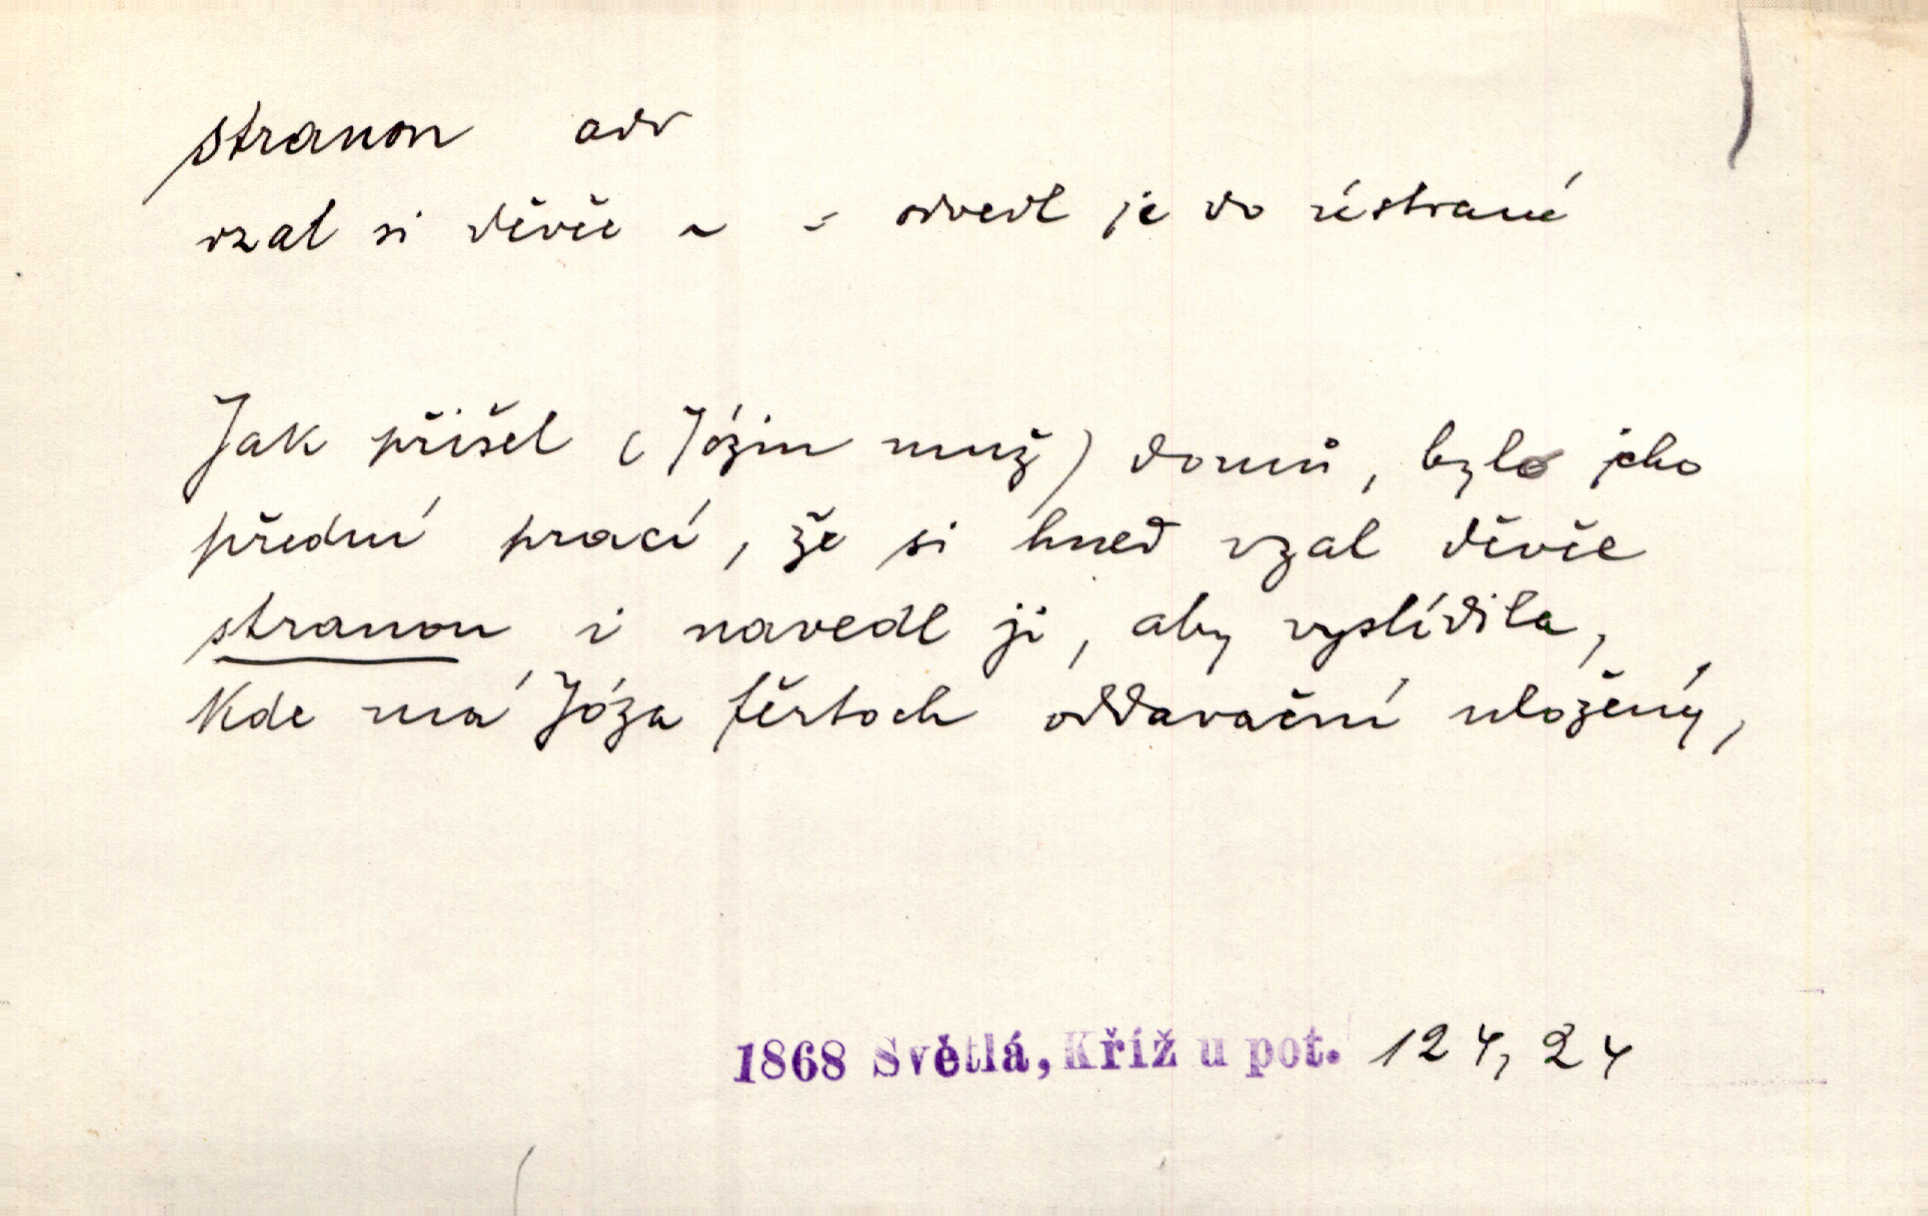 stranou adv
vzal si děvče ~ = odvedl je do ústraní
Jak přišel (Józin muž) domů, bylo jeho
přední prací, že si hned vzal děvče
stranou i navedl ji, aby vyslídila,
kde má Józa fěrtoch oddavační uložený,
1868 Světlá, Kříž u pot. 124, 24